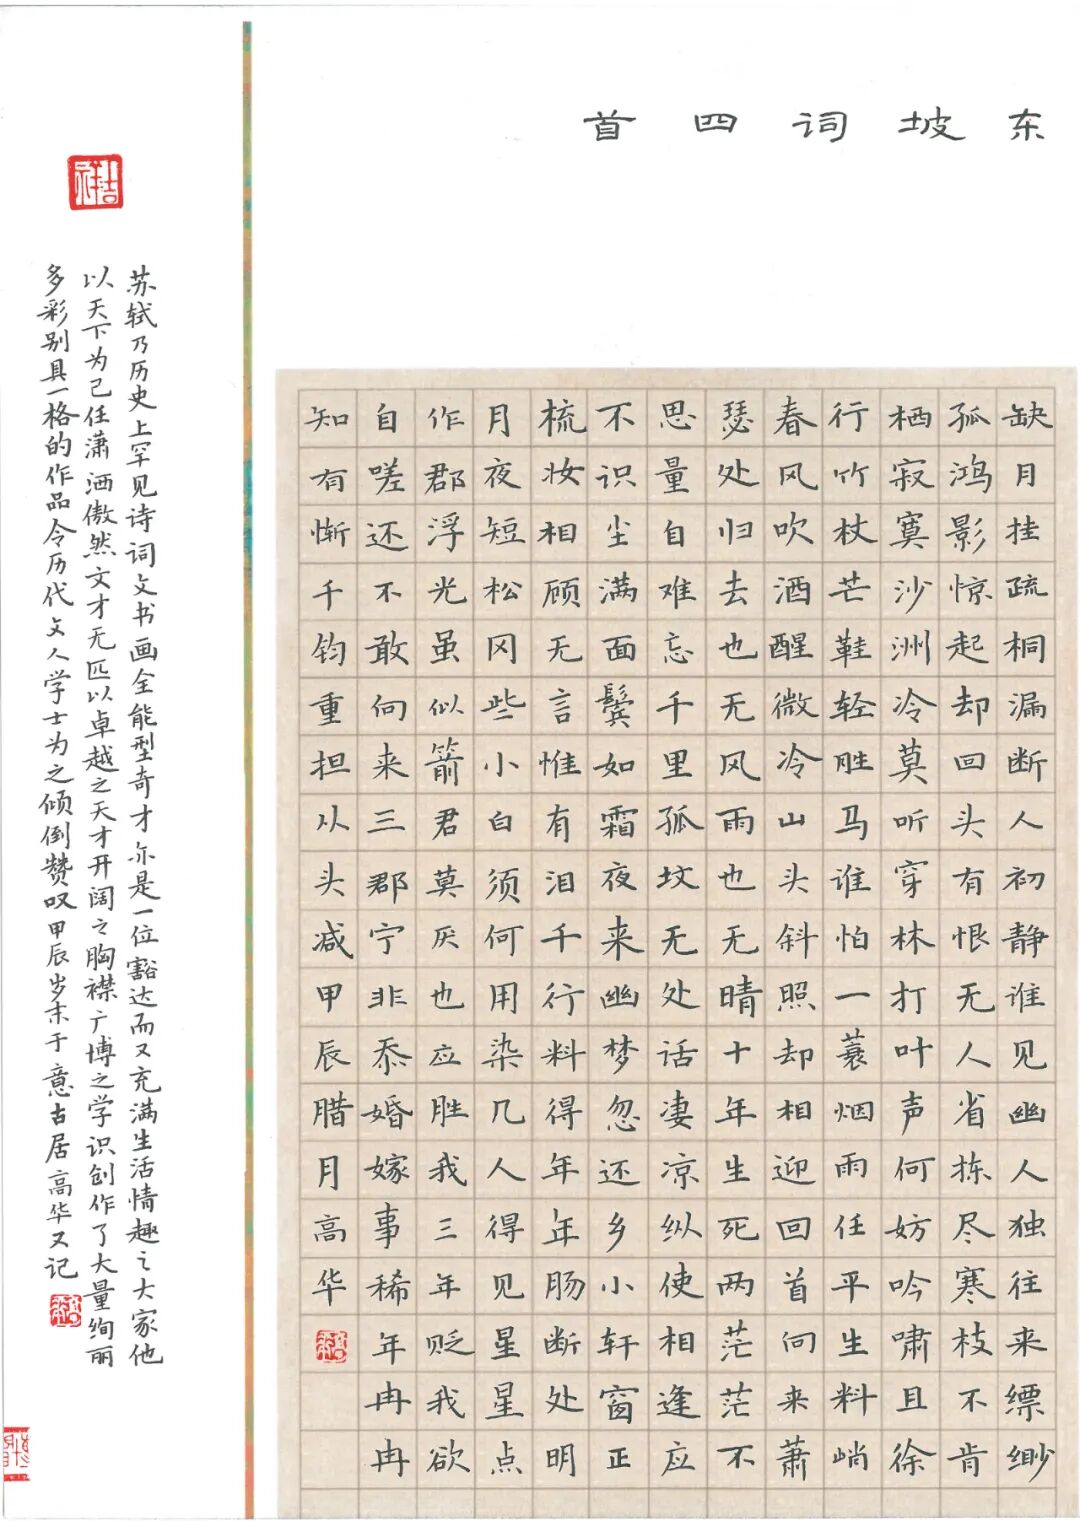 东坡词四首
缺月挂疏桐漏断人初静谁见幽人独往来缥缈
孤鸿影惊起却回头有恨无人省拣尽寒枝不肯
栖寂寞沙洲冷莫听穿林打叶声何妨吟啸且徐
行竹杖芒鞋轻胜马谁怕一蓑烟雨任平生料峭
春风吹酒醒微冷山头斜照却相迎回首向来萧
瑟处归去也无风雨也无晴十年生死两茫茫不
思量自难忘千里孤坟无处话凄凉纵使相逢应
不识尘满面鬓如霜夜来幽梦忽还乡小轩窗正
梳妆相顾无言惟有泪千行料得年年肠断处明
月夜短松冈些小白须何用染几人得见星星点
作郡浮光虽似箭君莫厌也应胜我三年贬我欲
自嗟还不敢向来三郡宁非忝婚嫁事稀年冉冉
知有惭千钧重担从头减甲辰腊月高华
苏轼乃历史上罕见诗词文书画全能型奇才亦是一位豁达而又充满生活情趣之大家他
以天下为己任潇洒傲然文才无匹以卓越之天才开阔之胸襟广博之学识创作了大量绚丽
多彩别具一格的作品令历代文人学士为之倾倒赞叹甲辰岁末于意古居高华又记